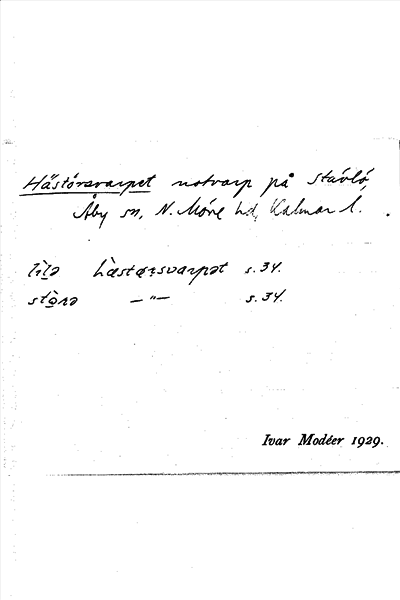 Hästörsvarpet notvarp på Stävlö,
Åby sn, N. Möre hd, Kalmar l.
lìlə hæ̀størsvarpət s. 34.
stòrə —"— s. 34.
Ivar Modéer 1929.